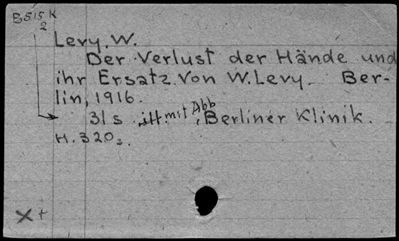 B515K
2
Levy, W.
Der Verlust der Hände und
ihr Ersatz. Von W. Levy. Ber-
lin, 1916.
31 s. mit Abb. Berliner Klinik.
H. 320.
X+